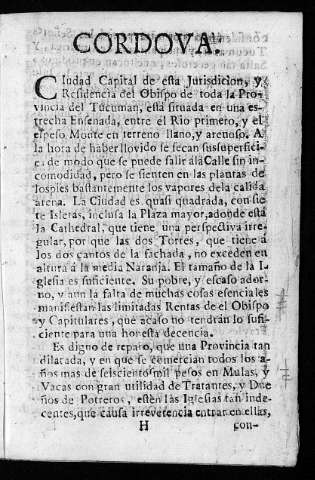 CORDOVA.
CIudad Capital de esta Jurisdicion, y
Residencia del Obispo de toda la Pro-
vincia del Tucuman, està situada en una es-
trecha Ensenada, entre el Rio primero, y el
espeso Monte en terreno llano, y arenoso. A
la hora de haber llovido se secan sussuperfici-
es de modo que se puede salir alàCalle sin in-
comodidad, pero se sienten en las plantas de
lospies bastantemente los vapores dela calida
arena. La Ciudad es quasi quadrada, con sie
te Isleras, inclusa la Plaza mayor, adonde està
la Cathedral, que tiene una perspectiva irre-
gular, por que las dos Torres, que tiene á
los dos cantos de la fachada, no exceden en
altura á la media Naranja. El tamaño de la I-
glesia es suficiente. Su pobre, y escaso ador-
no, y aun la falta de muchas cosas esenciales
manifiestan las limitadas Rentas de el Obispo
y Capitulares, que acaso no tendràn lo sufi-
ciente para una honesta decencia.
Es digno de reparo, que una Provincia tan
dilatada, y en que se comercian todos los a-
ños mas de seiscientos mil pesos en Mulas, y
Vacas con gran utilidad de Tratantes, y Due
ños de Potreros, estèn las Iglesias tan inde-
centes, que causa irreverencia entrar en ellas,
H con-